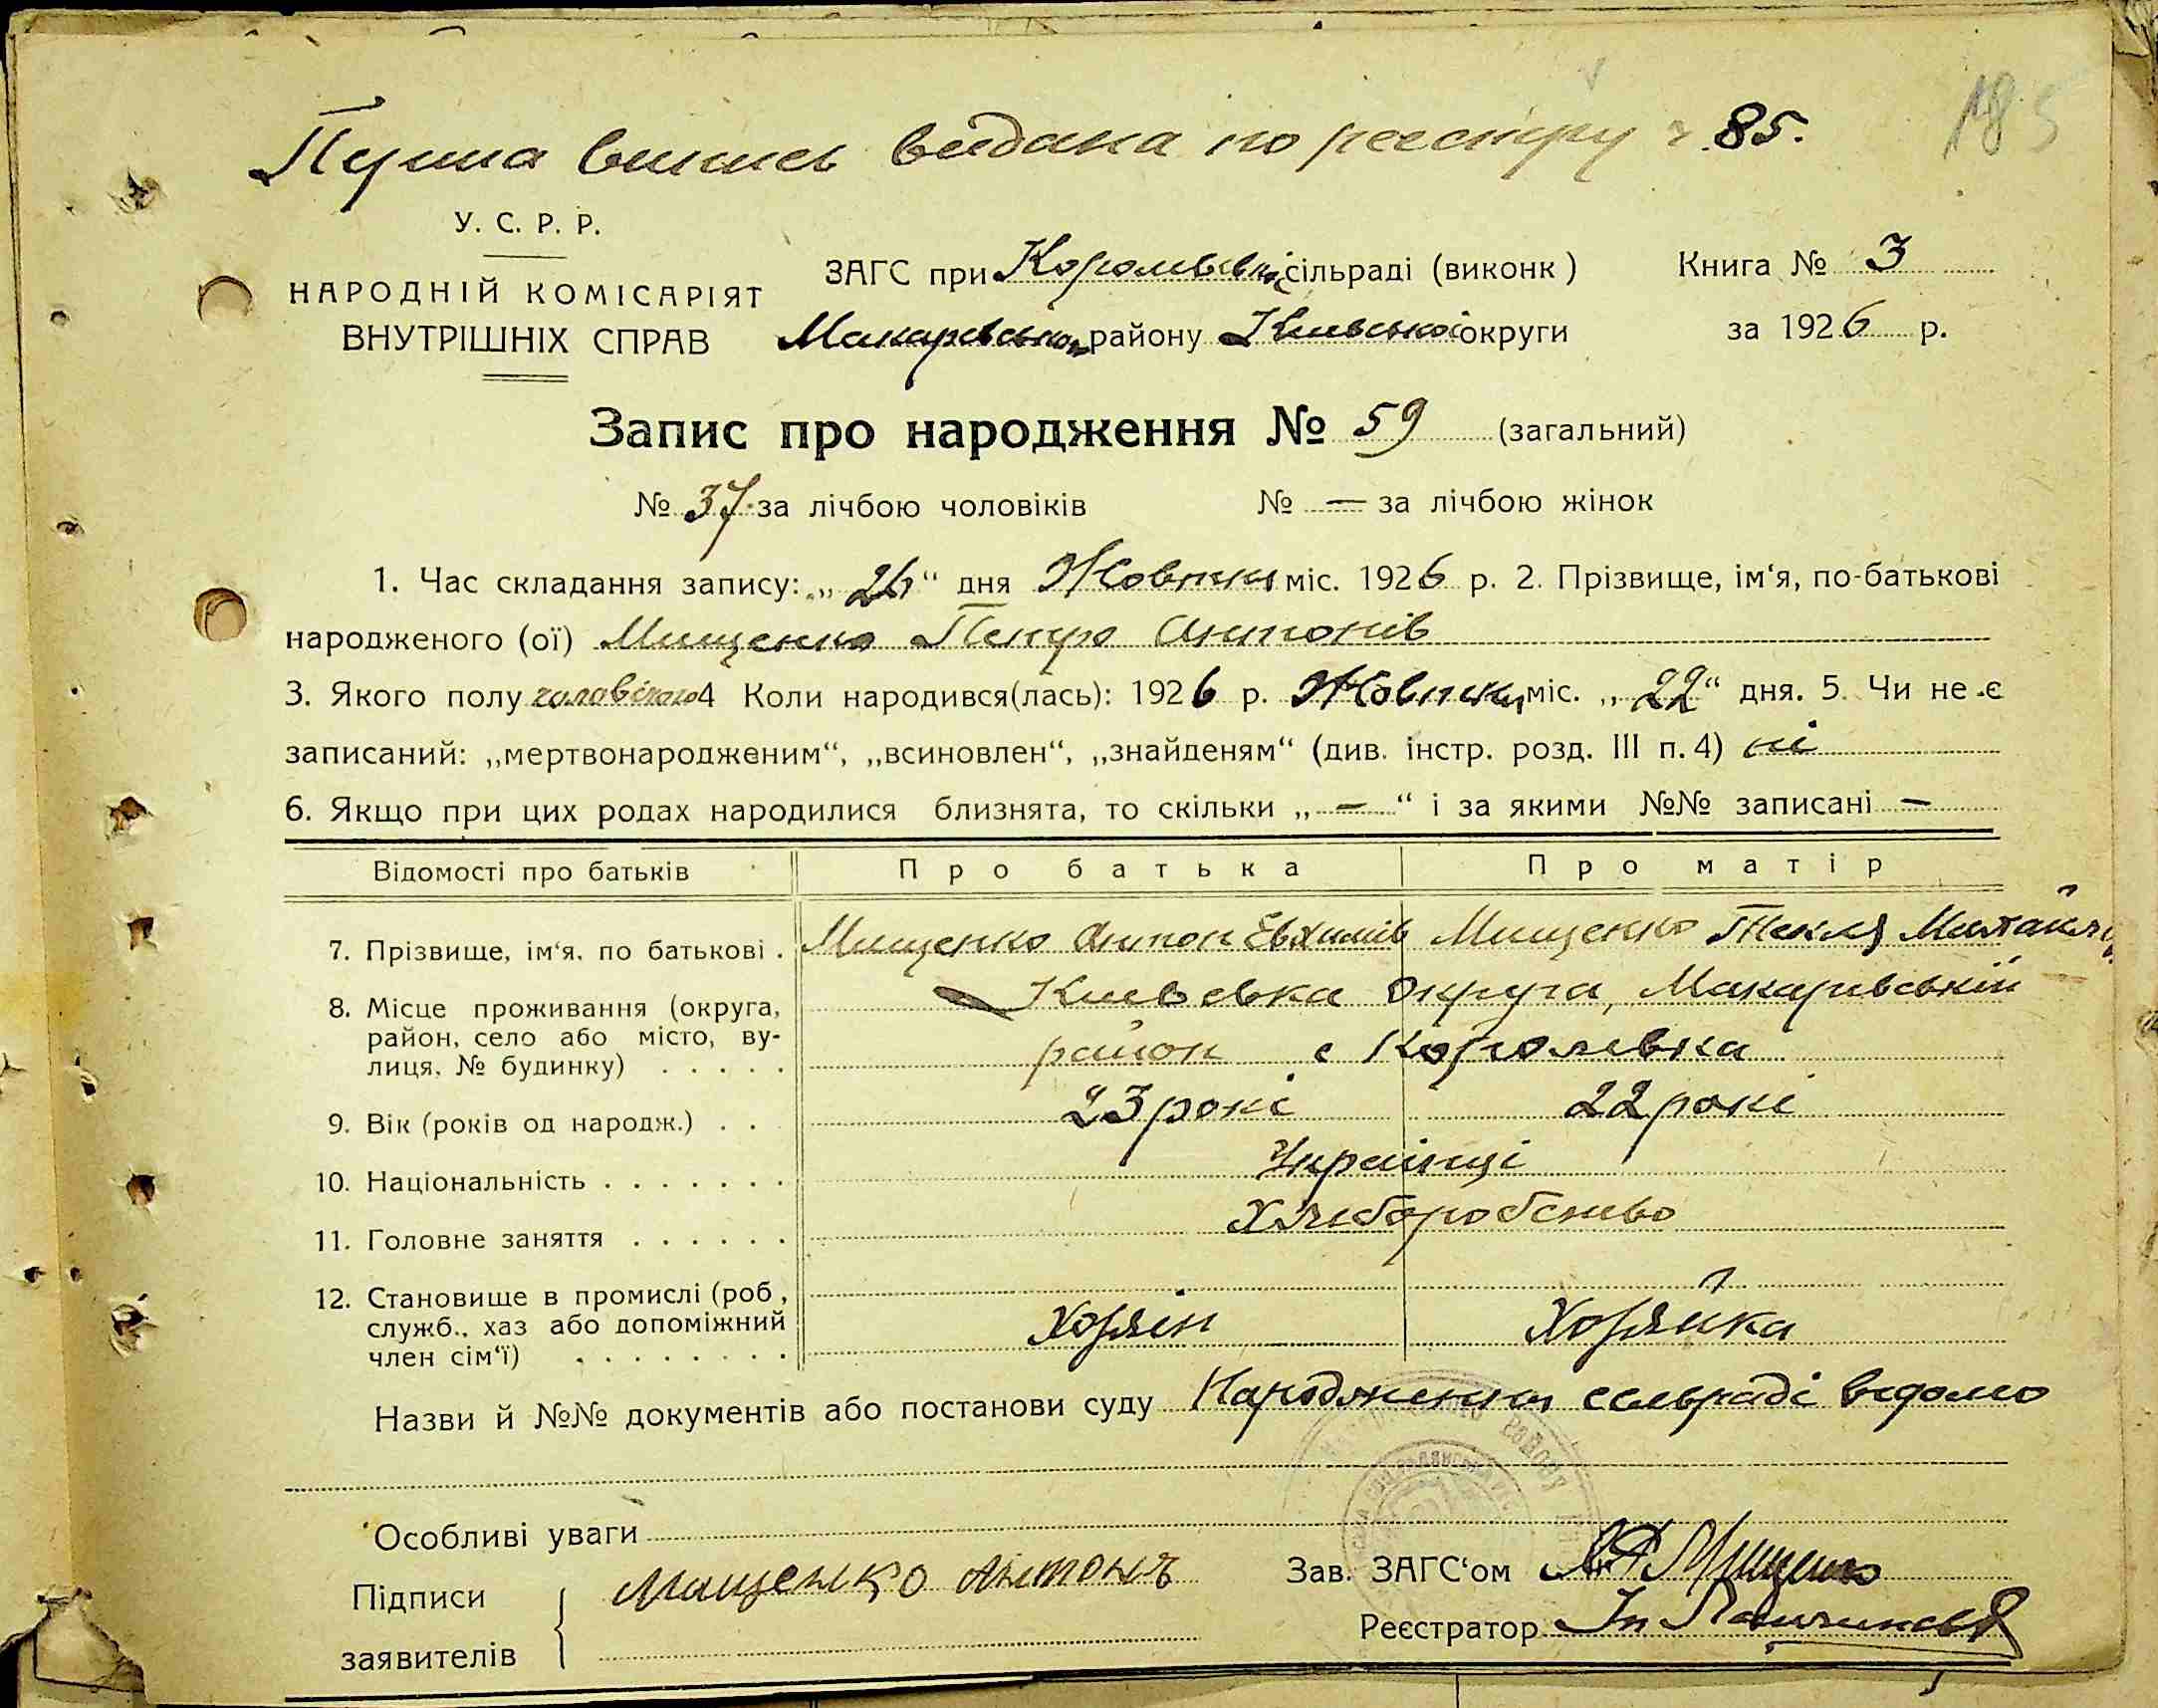 185
Перша випись видана по реєстру № 85.
У. С. Р. Р.
НАРОДНІЙ КОМІСАРІЯТ
ВНУТРІШНІХ СПРАВ
ЗАГС при Королівській сільраді (виконк) Книга № 3
Макарівського району Київської округи за 1926 р.
Запис про народження № 59 (загальний)
№ 37 за лічбою чоловіків № — за лічбою жінок
1. Час складання запису: „26“ дня Жовтня міс. 1926 р. 2. Прізвище, ім‘я, по-батькові
народженого (ої) Мищенко Петро Антонів
3. Якого полу чоловічого 4 Коли народився(лась): 1926 р. Жовтня міс. „22“ дня. 5. Чи не є
записаний: „мертвонародженим“, „всиновлен“, „знайденям“ (див. інстр. розд. III п. 4) ні
6. Якщо при цих родах народилися близнята, то скільки „—“ і за якими №№ записані —
Відомості про батьків Про батька Про матір
7. Прізвище, ім‘я, по батькові . Мищенко Антон Евхимів Мищенко Текля
8. Місце проживання (округа, Киевська Округа, Макарівський
район, село або місто, ву- район с Королевка
лиця, № будинку) . . . . .
9. Вік (років од народж.) . . 23 рокі 22 рокі
10. Національність . . . . . . . Українці
11. Головне заняття . . . . . . Хліборобство
12. Становище в промислі (роб,
служб., хаз або допоміжний Хозяін Хозяйка
член сім‘ї) . . . . . . . .
Назви й №№ документів або постанови суду Народження сельраді ведомо
Особливі уваги
Підписи Мищенко Антонъ Зав. ЗАГС‘ом Мищенко
заявителів Реєстратор